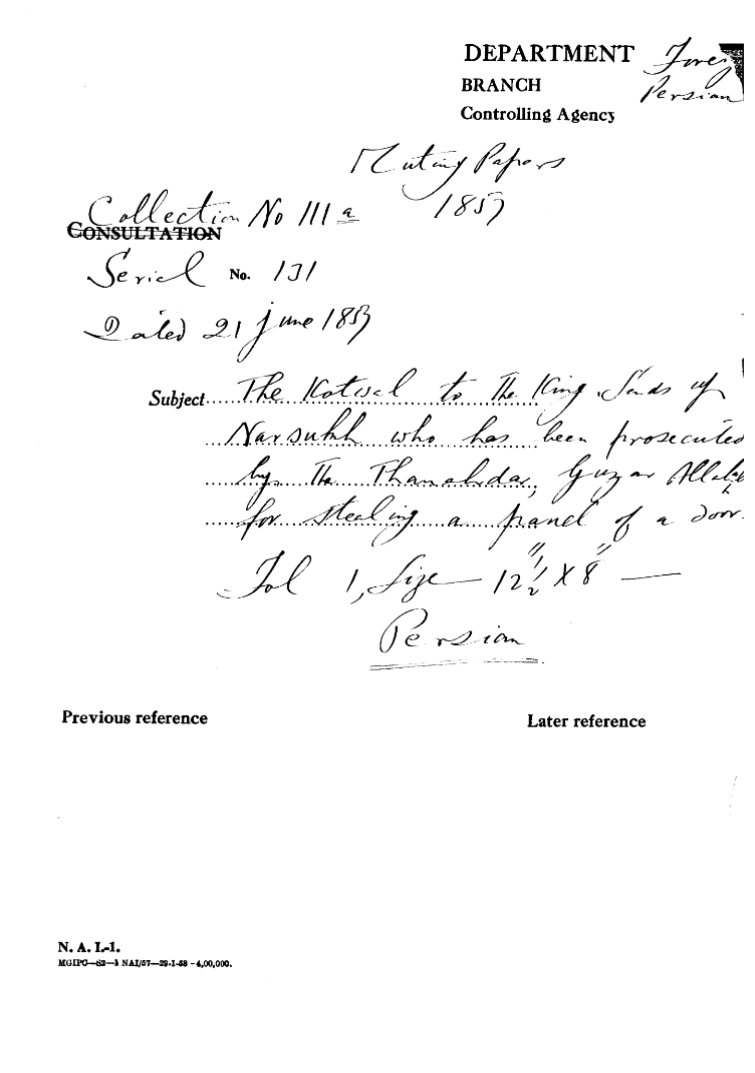 DEPARTMENT Forei
BRANCH Persian
Controlling Agency
Mutiny Papers
Collection No 111 a 1857
CONSULTATION
Serial No. 131
Dated 21 June 1857
Subject The Kotwal to the King Sends up
Narsukh who has been prosecuted
by the Thanahdar, Guzar Allah
for stealing a panel of a door.
Fol 1, Size — 12 1/2" X 8" —
Persian
Previous reference Later reference
N. A. I.-1.
MGIPC—S2—1 NAI/57—29-1-58 -4,00,000.